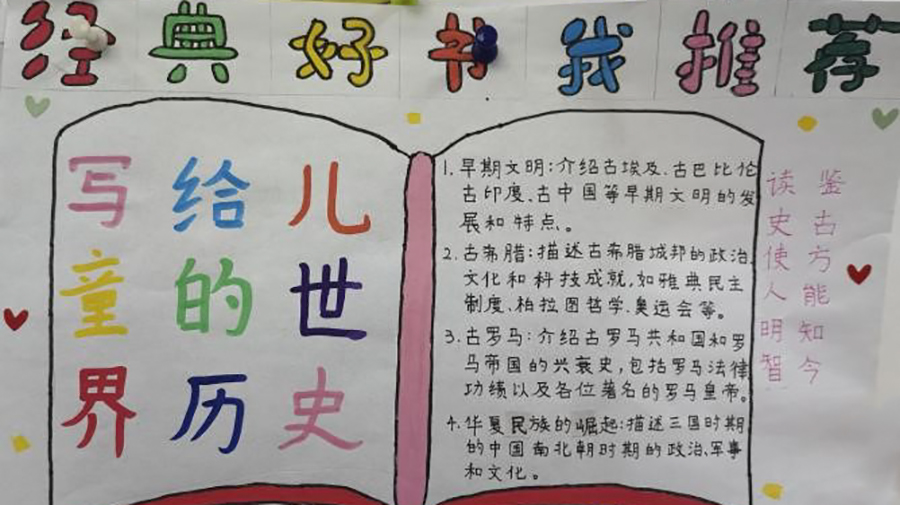 经典好书我推荐
写给儿
童的世
界历史
1.早期文明:介绍古埃及、古巴比伦
古印度、古中国等早期文明的发
展和特点。
2.古希腊:描述古希腊城邦的政治、
文化和科技成就,如雅典民主
制度、柏拉图哲学、奥运会等。
3.古罗马:介绍古罗马共和国和罗
马帝国的兴衰史,包括罗马法律
功绩以及各位著名的罗马皇帝。
4.华夏民族的崛起:描述三国时期
的中国南北朝时期的政治、军事
和文化。
读史使人明智
鉴古方能知今